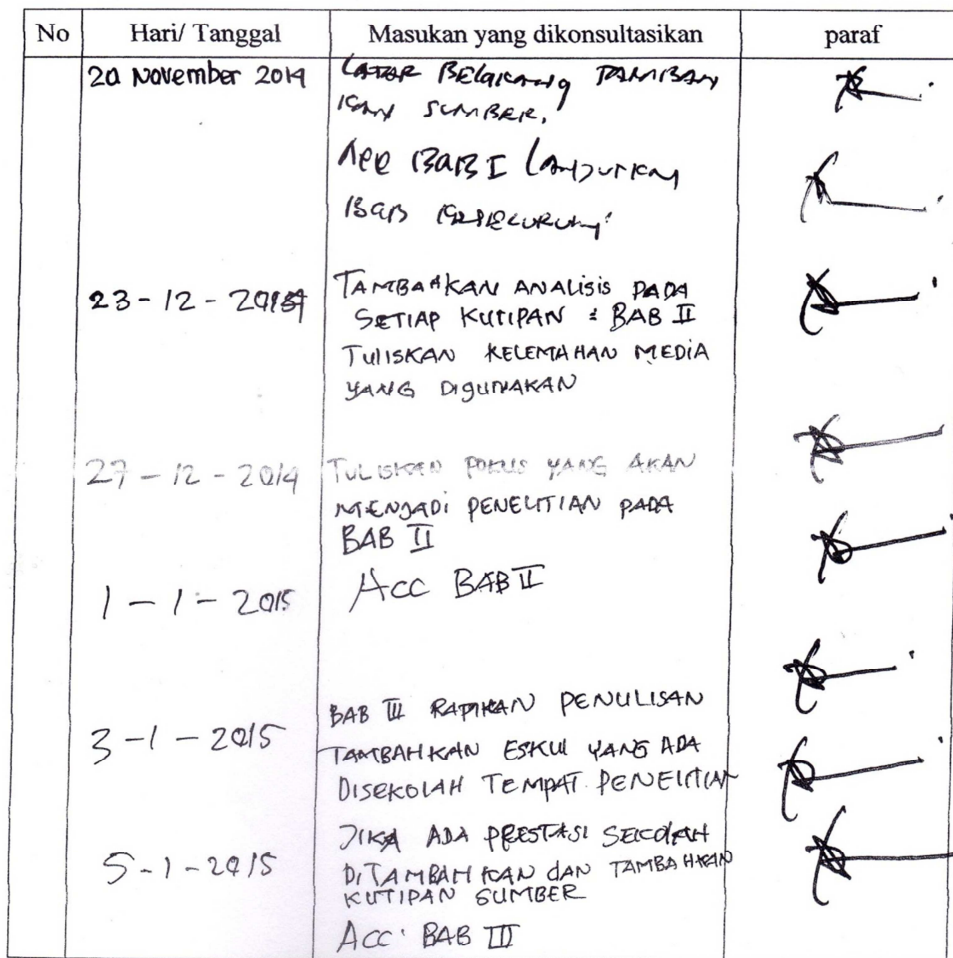 No Hari/ Tanggal Masukan yang dikonsultasikan paraf
20 November 2014 LATAR BELAKANG TAMBAH
KAN SUMBER.
Acc BAB I LANJUTKAN
BAB
23-12-2014 TAMBAHKAN ANALISIS PADA
SETIAP KUTIPAN : BAB II
TULISKAN KELEMAHAN MEDIA
YANG DIGUNAKAN
27-12-2014 TULISKAN FOKUS YANG AKAN
MENJADI PENELITIAN PADA
BAB II
1-1-2015 Acc BAB II
BAB III RAPIKAN PENULISAN
3-1-2015 TAMBAHKAN ESKUL YANG ADA
DISEKOLAH TEMPAT PENELITIAN
JIKA ADA PRESTASI SEKOLAH
5-1-2015 DITAMBAHKAN DAN TAMBAHKAN
KUTIPAN SUMBER
Acc BAB III